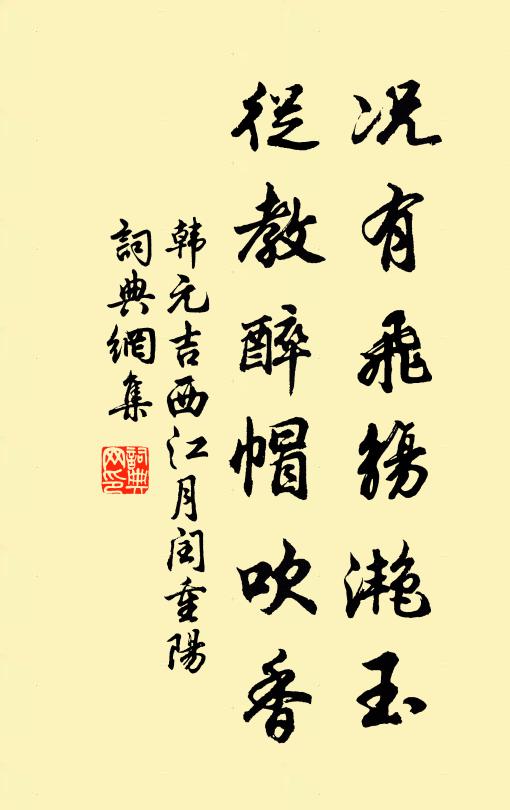 况有飛觴滟玉
從教醉帽吹香
韩元吉西江月闰重陽
詞典網集
詞典网印